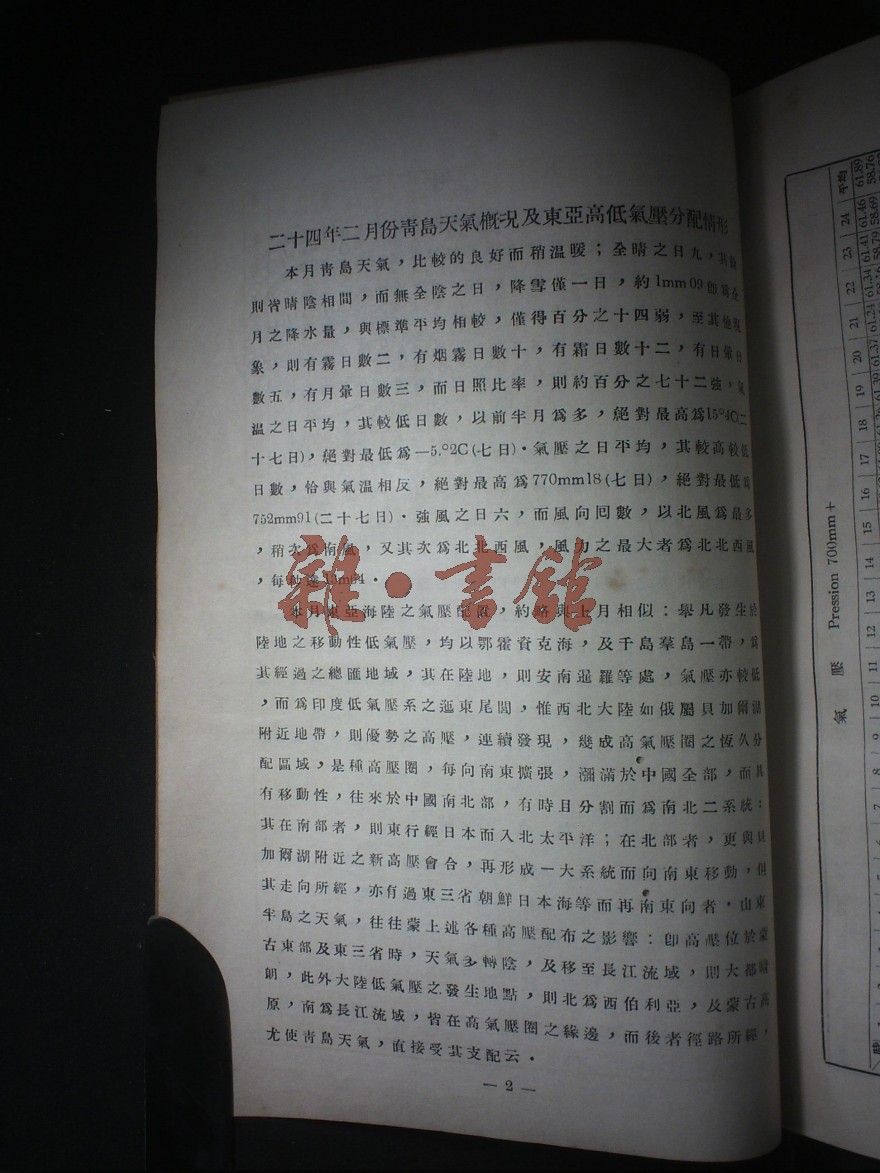 二十四年二月份青島天氣概況及東亞高低氣壓分配情形
本月青島天氣，比較的良好而稍溫暖；全晴之日九，其餘
則皆晴陰相間，而無全陰之日，降雪僅一日，約1mm09即爲全
月之降水量，與標準平均相較，僅得百分之十四弱，至其他現
象，則有霧日數二，有烟霧日數十，有霜日數十二，有日暈日
數五，有月暈日數三，而日照比率，則約百分之七十二強，氣
溫之日平均，其較低日數，以前半月爲多，絕對最高爲15°4C(二
十七日)，絕對最低爲—5.°2C(七日)·氣壓之日平均，其較高較低
日數，恰與氣溫相反，絕對最高爲770mm18(七日)，絕對最低爲
752mm91(二十七日)·強風之日六，而風向囘數，以北風爲最多
，稍次爲南風，又其次爲北北西風，風力之最大者爲北北西風
，每秒達13m64·
本月東亞海陸之氣壓配置，約略與上月相似：舉凡發生於
陸地之移動性低氣壓，均以鄂霍資克海，及千島羣島一帶，爲
其經過之總匯地域，其在陸地，則安南暹羅等處，氣壓亦較低
，而爲印度低氣壓系之迤東尾閭，惟西北大陸如俄屬貝加爾湖
附近地帶，則優勢之高壓，連續發現，幾成高氣壓圈之恆久分
配區域，是種高壓圈，每向南東擴張，瀰滿於中國全部，而其
有移動性，往來於中國南北部，有時且分割而爲南北二系統：
其在南部者，則東行經日本而入北太平洋；在北部者，更與貝
加爾湖附近之新高壓會合，再形成一大系統而向南東移動，但
其走向所經，亦有過東三省朝鮮日本海等而再南東向者，山東
半島之天氣，往往蒙上述各種高壓配布之影響：卽高壓位於蒙
古東部及東三省時，天氣多轉陰，及移至長江流域，則大都晴
朗，此外大陸低氣壓之發生地點，則北爲西伯利亞，及蒙古高
原，南爲長江流域，皆在高氣壓圈之緣邊，而後者徑路所經，
尤使青島天氣，直接受其支配云·
— 2 —
雜·書館
氣 壓 Pression 700mm+
8 9 10 11 12 13 14 15 16 17 18 19 20 21 22 23 24 平均
61.37 61.24 61.34 61.41 61.46 61.89
58.79 58.69 58.76